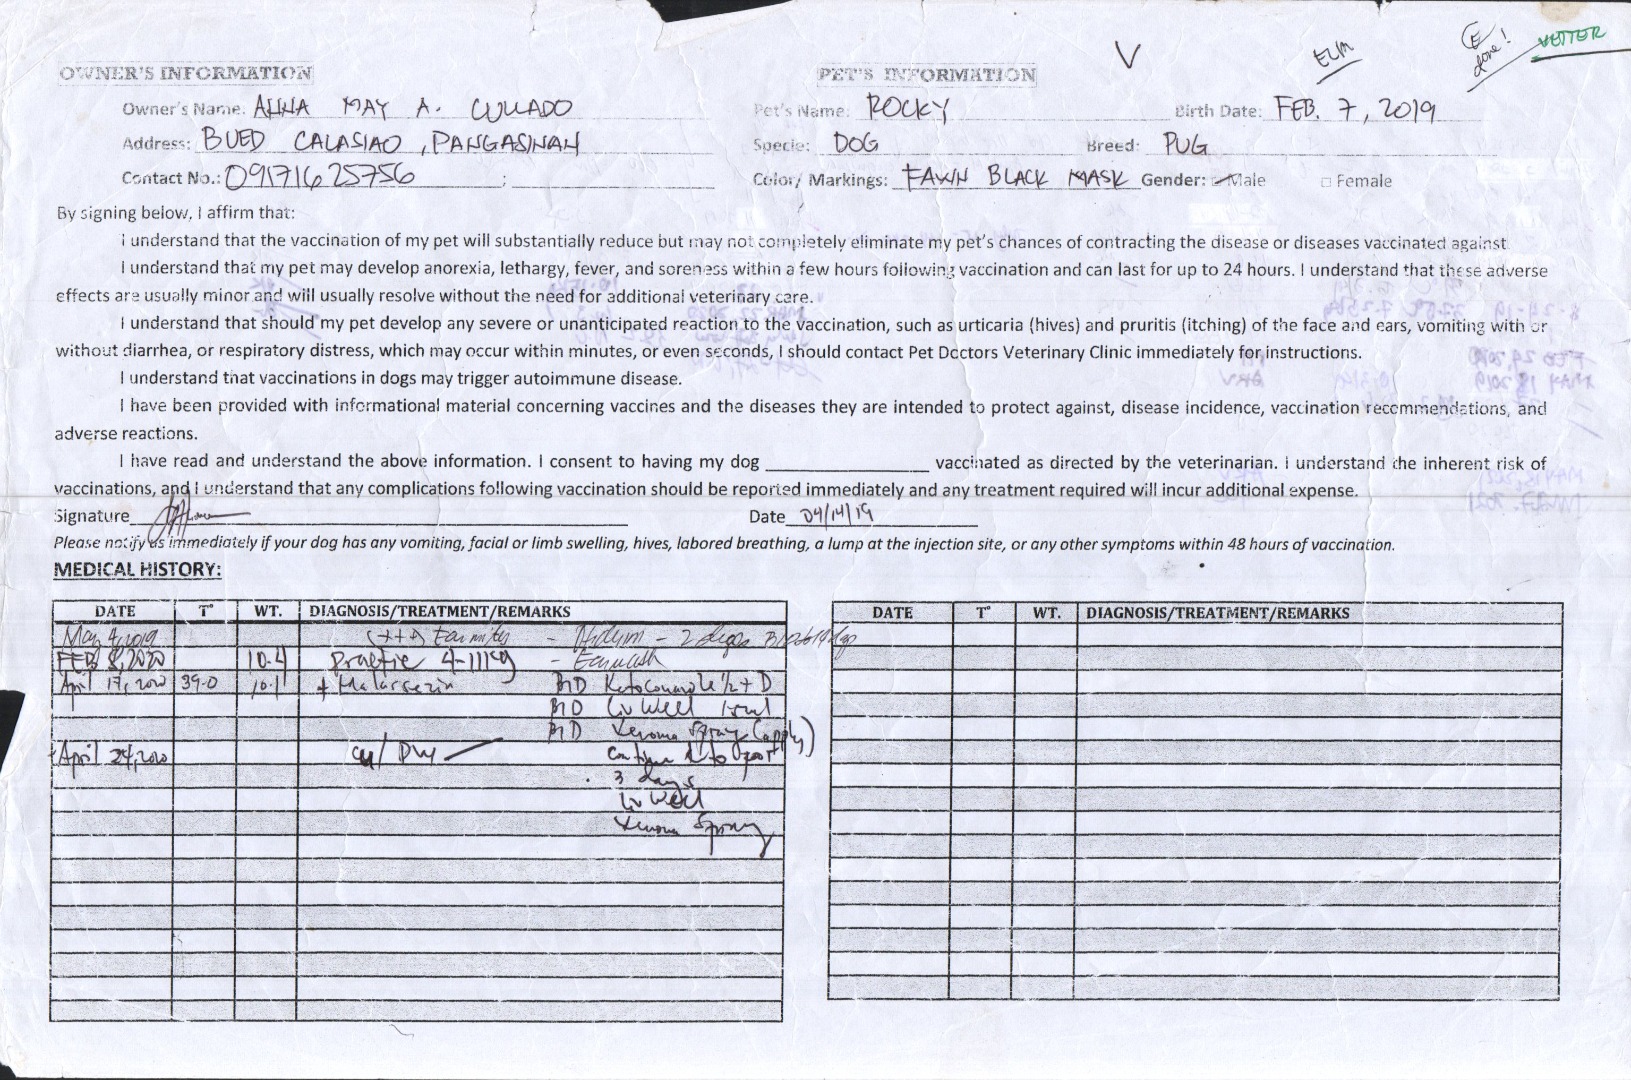 V
ELM
E done!
VETTER
OWNER'S INFORMATION
PET'S INFORMATION
Owner's Name: ANNA MAY A. CULLADO
Pet's Name: ROCKY Birth Date: FEB. 7, 2019
Address: BUED CALASIAO, PANGASINAN
Specie: DOG Breed: PUG
Contact No.: 09171625756 ;
Color/ Markings: FAWN BLACK MASK Gender: Male □ Female
By signing below, I affirm that:
I understand that the vaccination of my pet will substantially reduce but may not completely eliminate my pet's chances of contracting the disease or diseases vaccinated against.
I understand that my pet may develop anorexia, lethargy, fever, and soreness within a few hours following vaccination and can last for up to 24 hours. I understand that these adverse
effects are usually minor and will usually resolve without the need for additional veterinary care.
I understand that should my pet develop any severe or unanticipated reaction to the vaccination, such as urticaria (hives) and pruritis (itching) of the face and ears, vomiting with or
without diarrhea, or respiratory distress, which may occur within minutes, or even seconds, I should contact Pet Doctors Veterinary Clinic immediately for instructions.
I understand that vaccinations in dogs may trigger autoimmune disease.
I have been provided with informational material concerning vaccines and the diseases they are intended to protect against, disease incidence, vaccination recommendations, and
adverse reactions.
I have read and understand the above information. I consent to having my dog ____________ vaccinated as directed by the veterinarian. I understand the inherent risk of
vaccinations, and I understand that any complications following vaccination should be reported immediately and any treatment required will incur additional expense.
Signature Date 04/14/19
Please notify us immediately if your dog has any vomiting, facial or limb swelling, hives, labored breathing, a lump at the injection site, or any other symptoms within 48 hours of vaccination.
MEDICAL HISTORY:
DATE T° WT. DIAGNOSIS/TREATMENT/REMARKS
May 4, 2019 (+++) Earmites - 2 drops
FEB 8, 2020 10.4 Prazitic 4-11kg - Earwash
April 17, 2020 39.0 10.1 + Malassezia BID Ketoconazole 1/2 + D
BID Liv Well
BID Xeroma Spray (apply)
April 24, 2020 continue
3 days
Liv Well
Xeroma Spray
DATE T° WT. DIAGNOSIS/TREATMENT/REMARKS